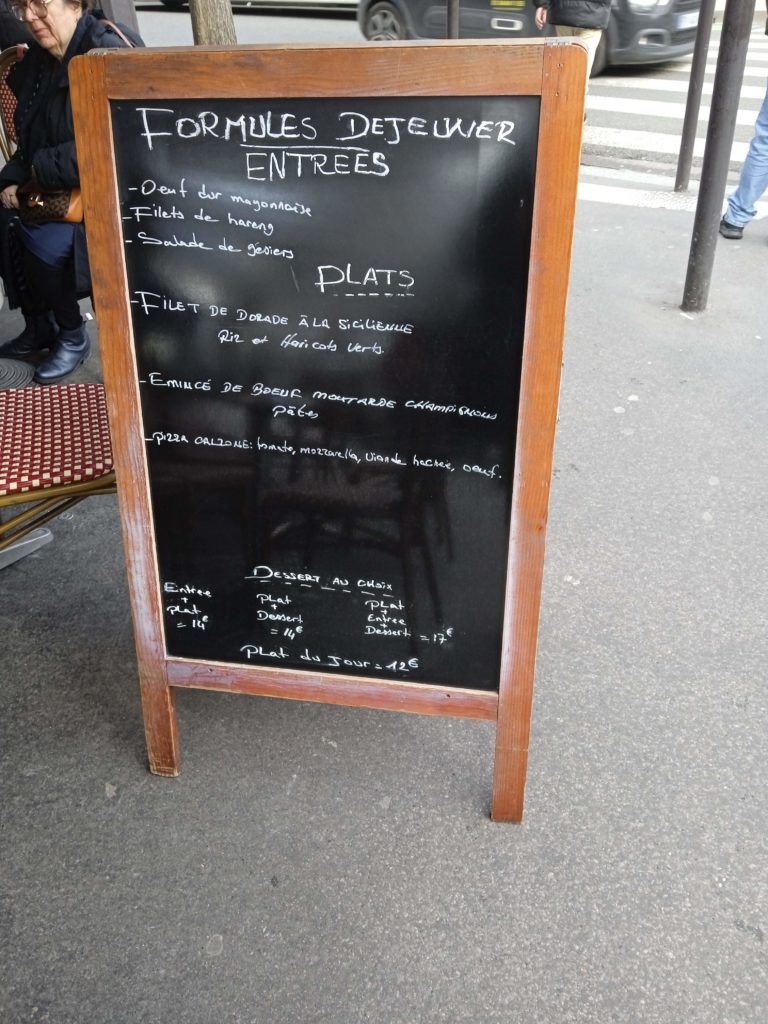 FORMULES DEJEUNER
ENTREES
- Oeuf dur mayonnaise
- Filets de hareng
- Salade de gésiers
PLATS
- FILET DE DORADE À LA SICILIENNE
Riz et Haricots verts.
- EMINCÉ DE BOEUF MOUTARDE CHAMPIGNONS
Pâtes
- PIZZA CALZONE: tomate, mozzarella, viande hachée, oeuf.
DESSERT AU CHOIX
Entree + plat = 14€
PLAT + Dessert = 14€
PLAT + Entree + Dessert = 17€
Plat du Jour = 12€